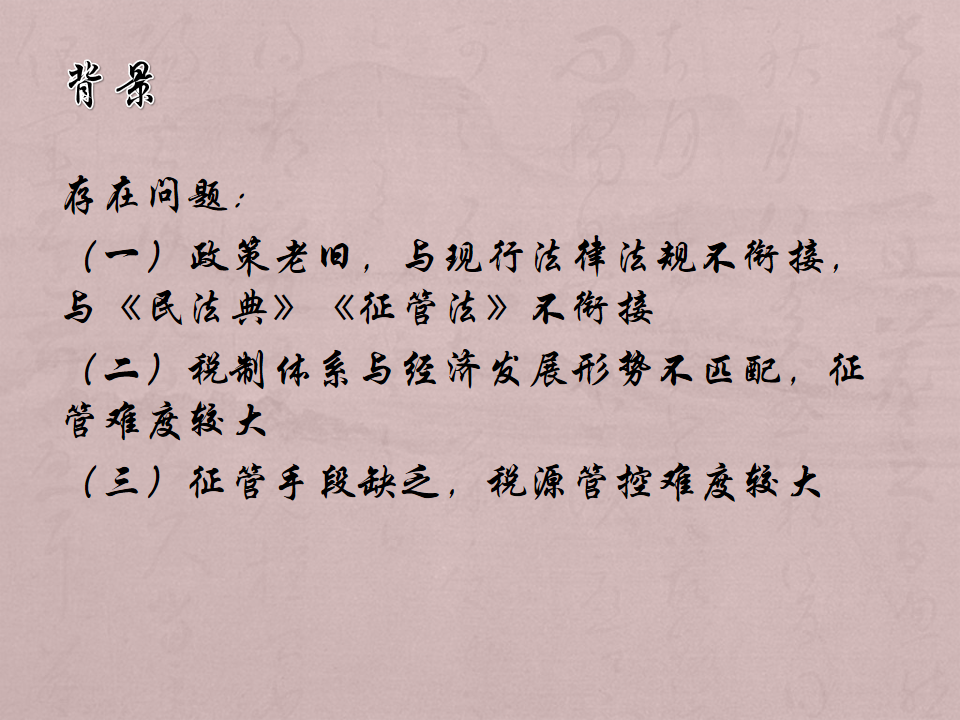 背景
存在问题：
（一）政策老旧，与现行法律法规不衔接，
与《民法典》《征管法》不衔接
（二）税制体系与经济发展形势不匹配，征
管难度较大
（三）征管手段缺乏，税源管控难度较大